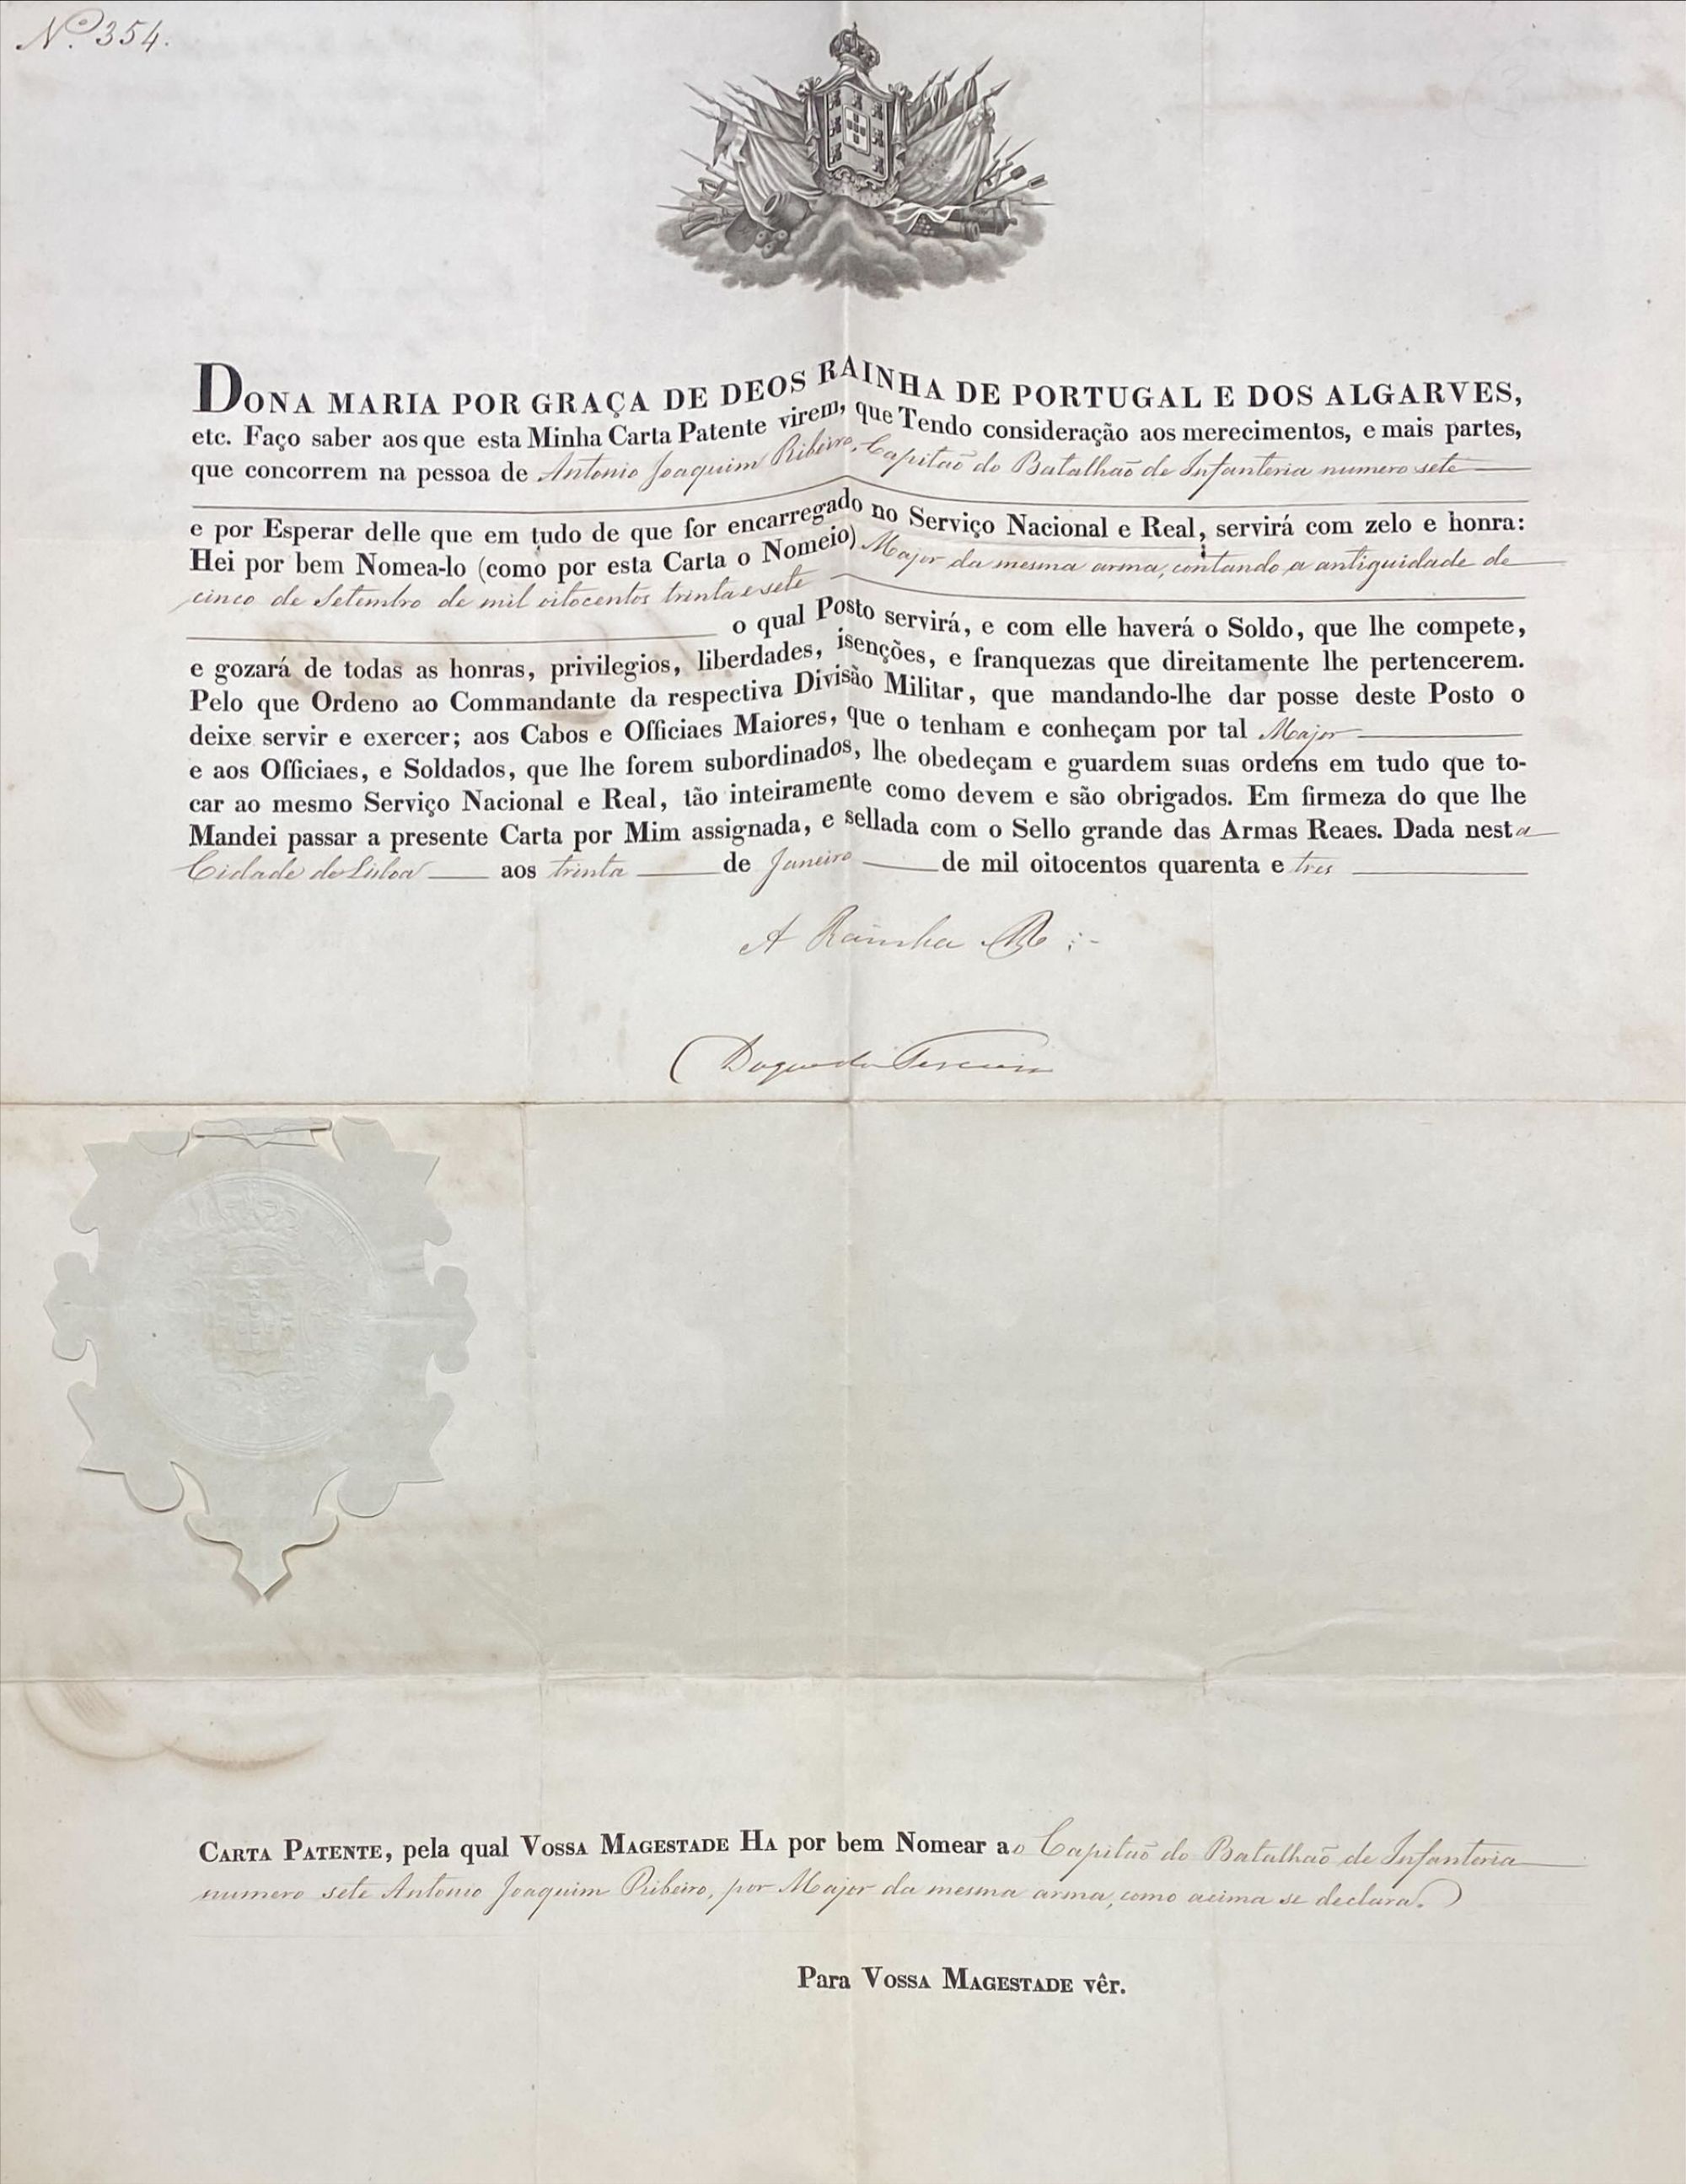 Nº 354.
DONA MARIA POR GRAÇA DE DEOS RAINHA DE PORTUGAL E DOS ALGARVES,
etc. Faço saber aos que esta Minha Carta Patente virem, que Tendo consideração aos merecimentos, e mais partes,
que concorrem na pessoa de Antonio Joaquim Ribeiro, Capitaõ do Batalhaõ de Infanteria numero sete
e por Esperar delle que em tudo de que for encarregado no Serviço Nacional e Real, servirá com zelo e honra:
Hei por bem Nomea-lo (como por esta Carta o Nomeio) Major da mesma arma, contando a antiguidade de
cinco de Setembro de mil oitocentos trinta e sete
o qual Posto servirá, e com elle haverá o Soldo, que lhe compete,
e gozará de todas as honras, privilegios, liberdades, isenções, e franquezas que direitamente lhe pertencerem.
Pelo que Ordeno ao Commandante da respectiva Divisão Militar, que mandando-lhe dar posse deste Posto o
deixe servir e exercer; aos Cabos e Officiaes Maiores, que o tenham e conheçam por tal Major
e aos Officiaes, e Soldados, que lhe forem subordinados, lhe obedeçam e guardem suas ordens em tudo que to-
car ao mesmo Serviço Nacional e Real, tão inteiramente como devem e são obrigados. Em firmeza do que lhe
Mandei passar a presente Carta por Mim assignada, e sellada com o Sello grande das Armas Reaes. Dada nesta
Cidade de Lisboa aos trinta de Janeiro de mil oitocentos quarenta e tres
A Rainha R
Duque da Terceira
CARTA PATENTE, pela qual VOSSA MAGESTADE HA por bem Nomear ao Capitaõ do Batalhaõ de Infanteria
numero sete Antonio Joaquim Ribeiro, por Major da mesma arma, como acima se declara.
Para VOSSA MAGESTADE vêr.